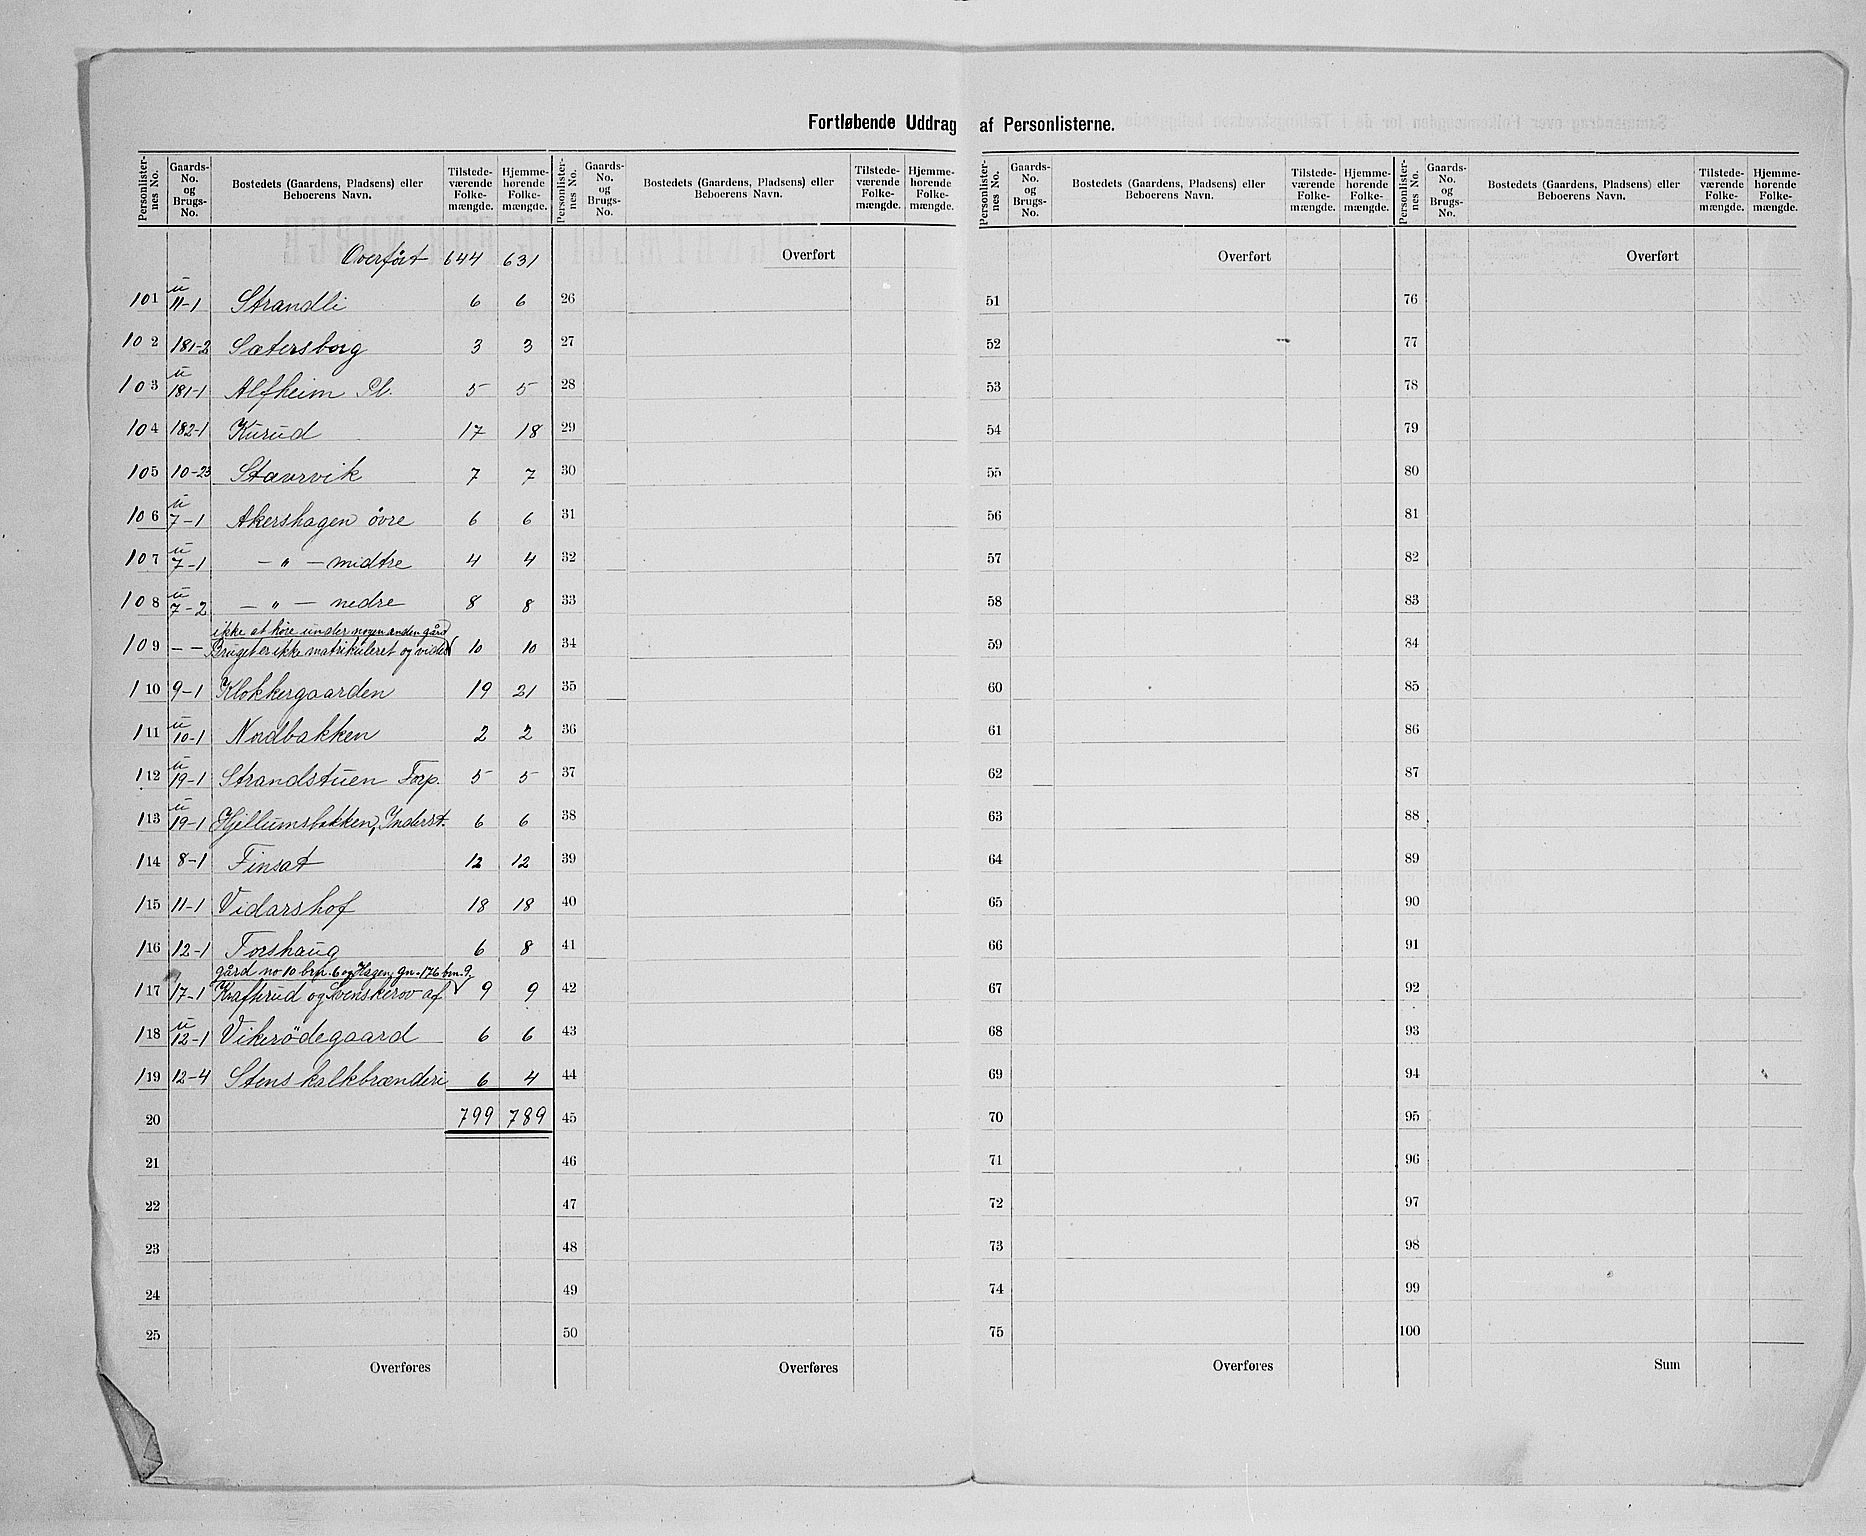 Fortløbende Uddrag af Personlisterne.
Personlister-nes No. | Gaards-No. og Brugs-No. | Bostedets (Gaardens, Pladsens) eller Beboerens Navn. | Tilstede-værende Folke-mængde. | Hjemme-hørende Folke-mængde.
Overført 644 631
101 u 11-1 Strandli 6 6
102 181-2 Sætersborg 3 3
103 u 181-1 Alfheim Pl. 5 5
104 182-1 Kurud 17 18
105 10-23 Stavrvik 7 7
106 u 7-1 Akershagen övre 6 6
107 u 7-1 — „ — midtre 4 4
108 u 7-2 — „ — nedre 8 8
ikke at höre under nogen anden gård
109 — — Bruget er ikke matrikuleret og vides 10 10
110 9-1 Klokkergaarden 19 21
111 u 10-1 Nordbakken 2 2
112 u 19-1 Strandstuen Torp. 5 5
113 u 19-1 Hjellumsbakken, Inderst. 6 6
114 8-1 Finsat 12 12
115 11-1 Vidarshof 18 18
116 12-1 Torshaug 6 8
gård no 10 brn. 6 og Hagen gn. 176 brn. 9.
117 17-1 Krafterud og Svenskerov af 9 9
118 u 12-1 Vikerødegaard 6 6
119 12-4 Stens kalkbrænderi 6 4
20 799 789
21
22
23
24
25
Overføres
Personlister-nes No. | Gaards-No. og Brugs-No. | Bostedets (Gaardens, Pladsens) eller Beboerens Navn. | Tilstede-værende Folke-mængde. | Hjemme-hørende Folke-mængde.
Overført
26
27
28
29
30
31
32
33
34
35
36
37
38
39
40
41
42
43
44
45
46
47
48
49
50
Overføres
Personlister-nes No. | Gaards-No. og Brugs-No. | Bostedets (Gaardens, Pladsens) eller Beboerens Navn. | Tilstede-værende Folke-mængde. | Hjemme-hørende Folke-mængde.
Overført
51
52
53
54
55
56
57
58
59
60
61
62
63
64
65
66
67
68
69
70
71
72
73
74
75
Overføres
Personlister-nes No. | Gaards-No. og Brugs-No. | Bostedets (Gaardens, Pladsens) eller Beboerens Navn. | Tilstede-værende Folke-mængde. | Hjemme-hørende Folke-mængde.
Overført
76
77
78
79
80
81
82
83
84
85
86
87
88
89
90
91
92
93
94
95
96
97
98
99
100
Sum